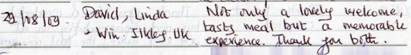 29/08/09. David, Linda Not only a lovely welcome,
Win. Ilkley. UK tasty meal but a memorable
experience. Thank you both.